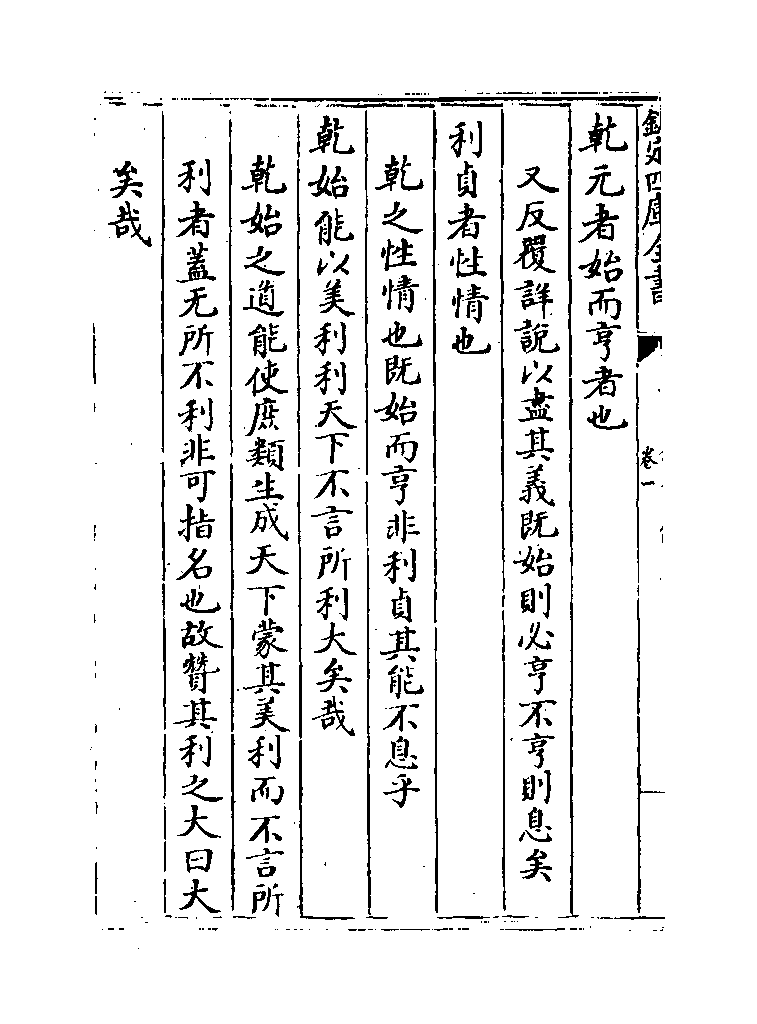 欽定四庫全書
卷一
乾元者始而亨者也
又反覆詳說以盡其義既始則必亨不亨則息矣
利貞者性情也
乾之性情也既始而亨非利貞其能不息乎
乾始能以美利利天下不言所利大矣哉
乾始之道能使庶類生成天下蒙其美利而不言所
利者蓋无所不利非可指名也故贊其利之大曰大
矣哉